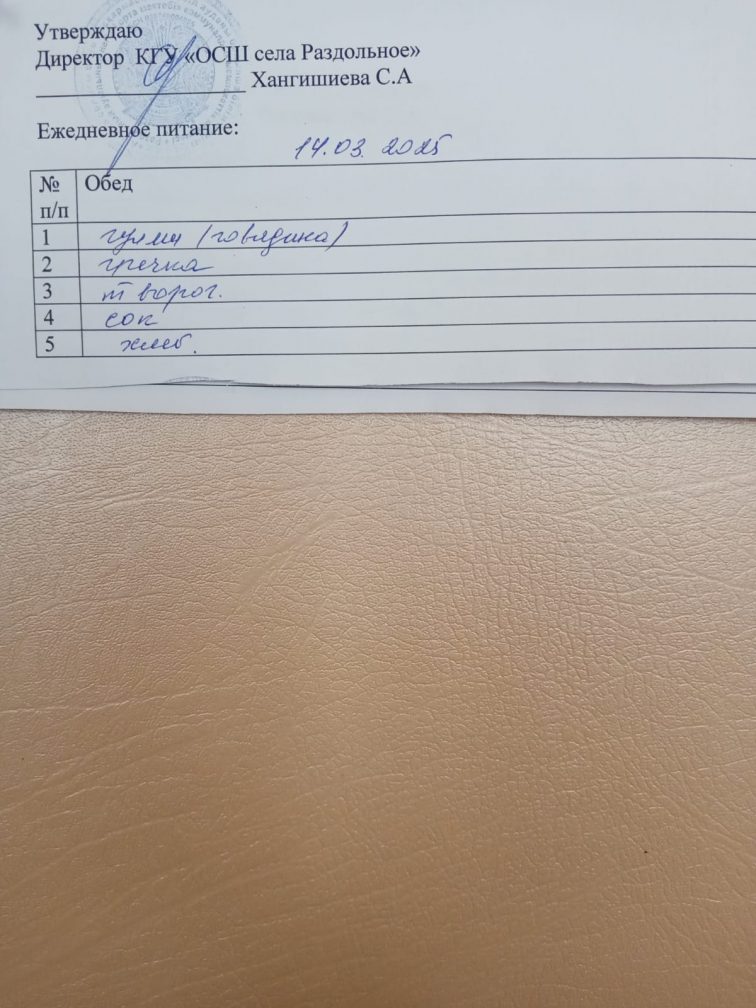 Утверждаю
Директор КГУ «ОСШ села Раздольное»
Хангишиева С.А
Ежедневное питание:
14.03.2025
№ п/п Обед
1 гуляш (говядина)
2 гречка
3 творог.
4 сок
5 хлеб.